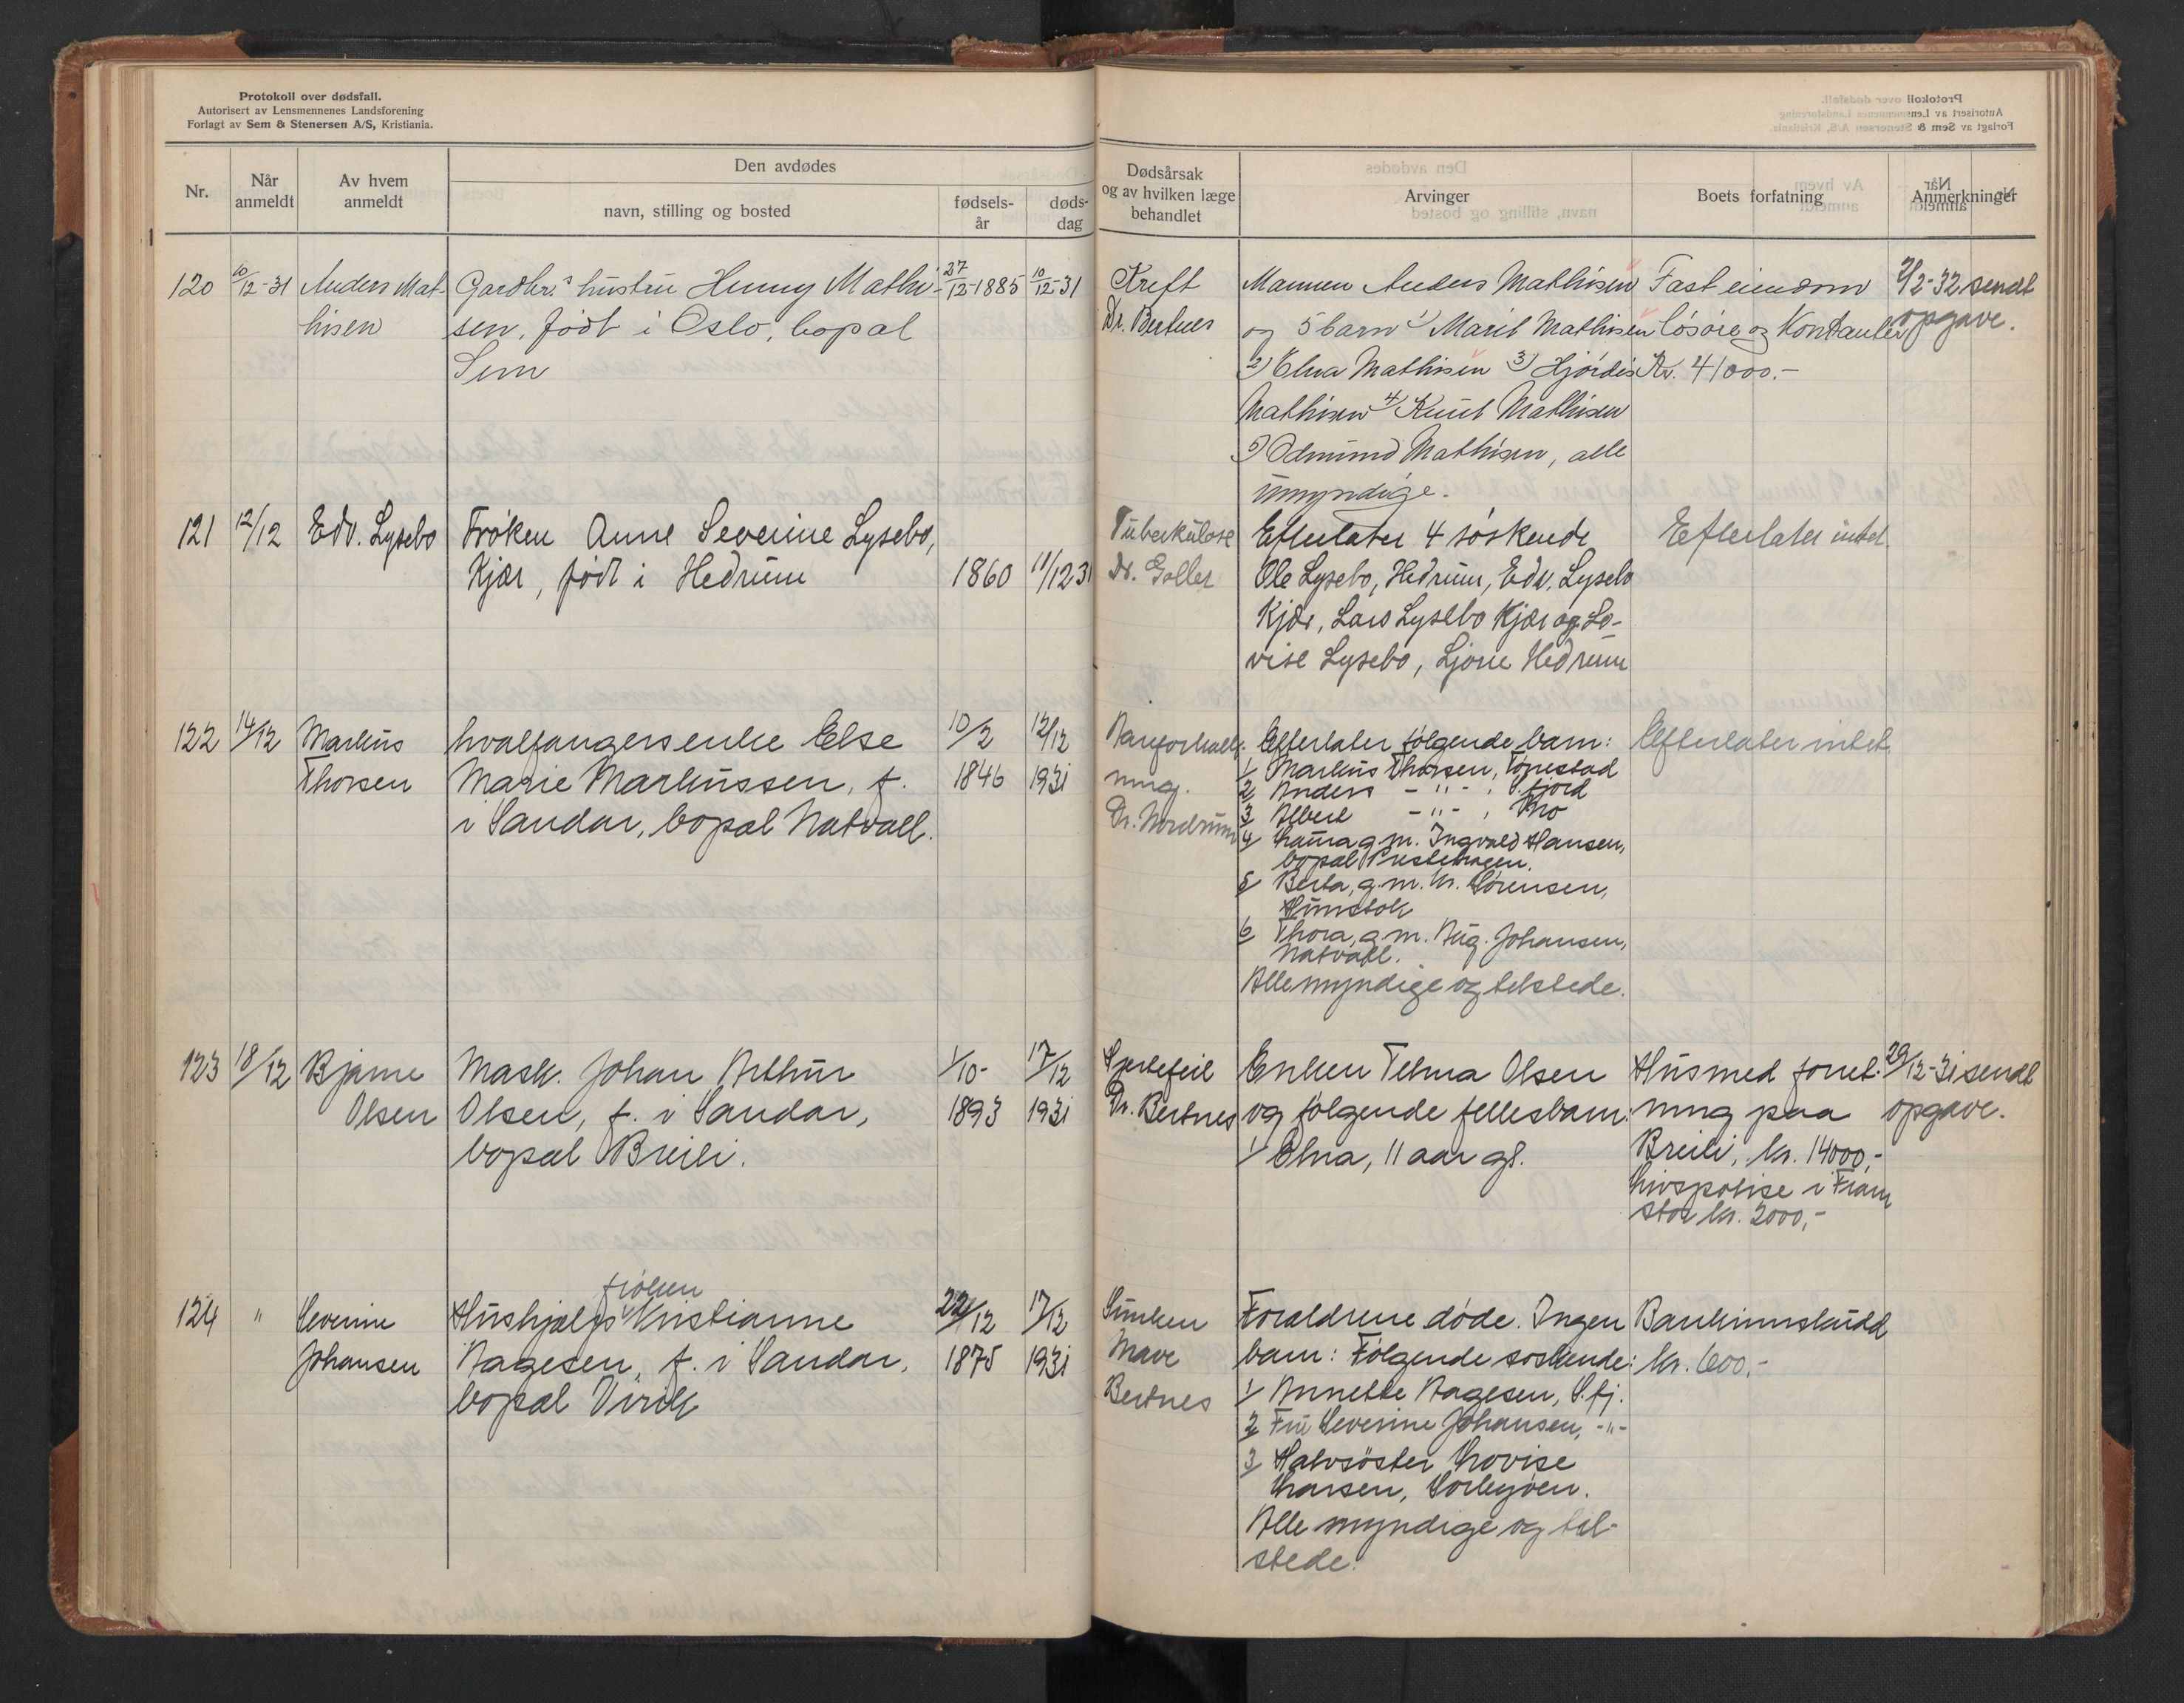 Protokoll over dødsfall.
Autorisert av Lensmennenes Landsforening
Forlagt av Sem & Stenersen A/S, Kristiania.
Nr.
Når anmeldt
Av hvem anmeldt
Den avdødes
navn, stilling og bosted
fødsels-år
døds-dag
Dødsårsak og av hvilken læge behandlet
Arvinger
Boets forfatning
Anmerkninger
120
10/12-31
Anders Mat-
hisen
Gardbr.s hustru Henny Mathi-
sen, født i Oslo, bopal
Sem
27/12-1885
10/12-31
Kreft
Dr. Bertnes
Mannen Anders Mathisen
og 5 barn 1) Marit Mathisen
2) Elna Mathisen 3) Hjördis
Mathisen 4) Knut Mathisen
5) Odmund Mathisen, alle
umyndige.
Fast eiendom
løsøre og Kontanter
Kr. 41000.-
2/2-32 sendt
opgave.
121
12/12
Edv. Lysebo
Frøken Anne Severine Lysebo,
Kjær, født i Hedrum
1860
11/12 31
Tuberkulose
Dr. Goller
Efterlater 4 søskende
Ole Lysebo, Hedrum, Edv. Lysebo
Kjær, Lars Lysebo Kjær og Lo-
vise Lysebo, Ljone Hedrum
Efterlater intet.
122
14/12
Markus
Thorsen
hvalfangersenke Else
Marie Markussen, f.
i Sandar, bopal Natvall.
10/2
1846
12/12
1931
Aareforkalk-
ning.
Dr. Nordrum
Efterlater følgende barn:
1/ Markus Thorsen, Tønestad
2/ Anders -"- , S.fjord
3/ Albert -"- , Mo
4/ Laura g.m. Ingvald Hansen,
bopal Prestehagen.
5/ Berta, g.m. Kr. Sørensen,
Hunstok
6/ Thora, g.m. Aug. Johansen,
Natvall.
Alle myndige og tilstede.
Efterlater intet
123
18/12
Bjarne
Olsen
Mask. Johan Arthur
Olsen, f. i Sandar,
bopal Breili.
1/10-
1893
17/12
1931
Hjertefeil
Dr. Bertnes
Enken Telma Olsen
og følgende fellesbarn:
1/ Elna, 11 aar gl.
Hus med forret-
ning paa
Breili, kr. 14000,-
Livspolise i Fram
stor kr. 2000,-
29/12-31 sendt
opgave.
124
"
Severine
Johansen
frøken
Hushjelp Kristianne
Aagesen, f. i Sandar,
bopal Virik
22/12
1875
17/12
1931
Sunken
Mave
Bertnes
Foreldrene døde. Ingen
barn: Følgende søskende:
1/ Annette Aagesen, S.fj.
2/ Fru Severine Johansen, -"-
3/ Halvsöster Lovise
Larsen, Sorbyöen.
Alle myndige og til-
stede.
Bankinnskudd
kr. 600,-